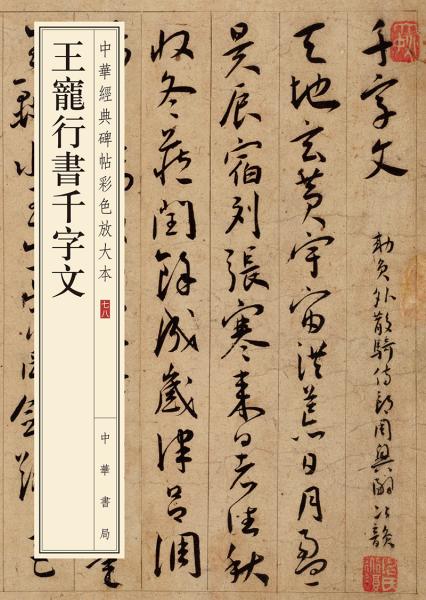 中華經典碑帖彩色放大本 七八
王寵行書千字文
中華書局
千字文
勅員外散騎侍郎周興嗣次韻
天地玄黃宇宙洪荒日月盈
昃辰宿列張寒來暑往秋
收冬藏閏餘成歲律呂調